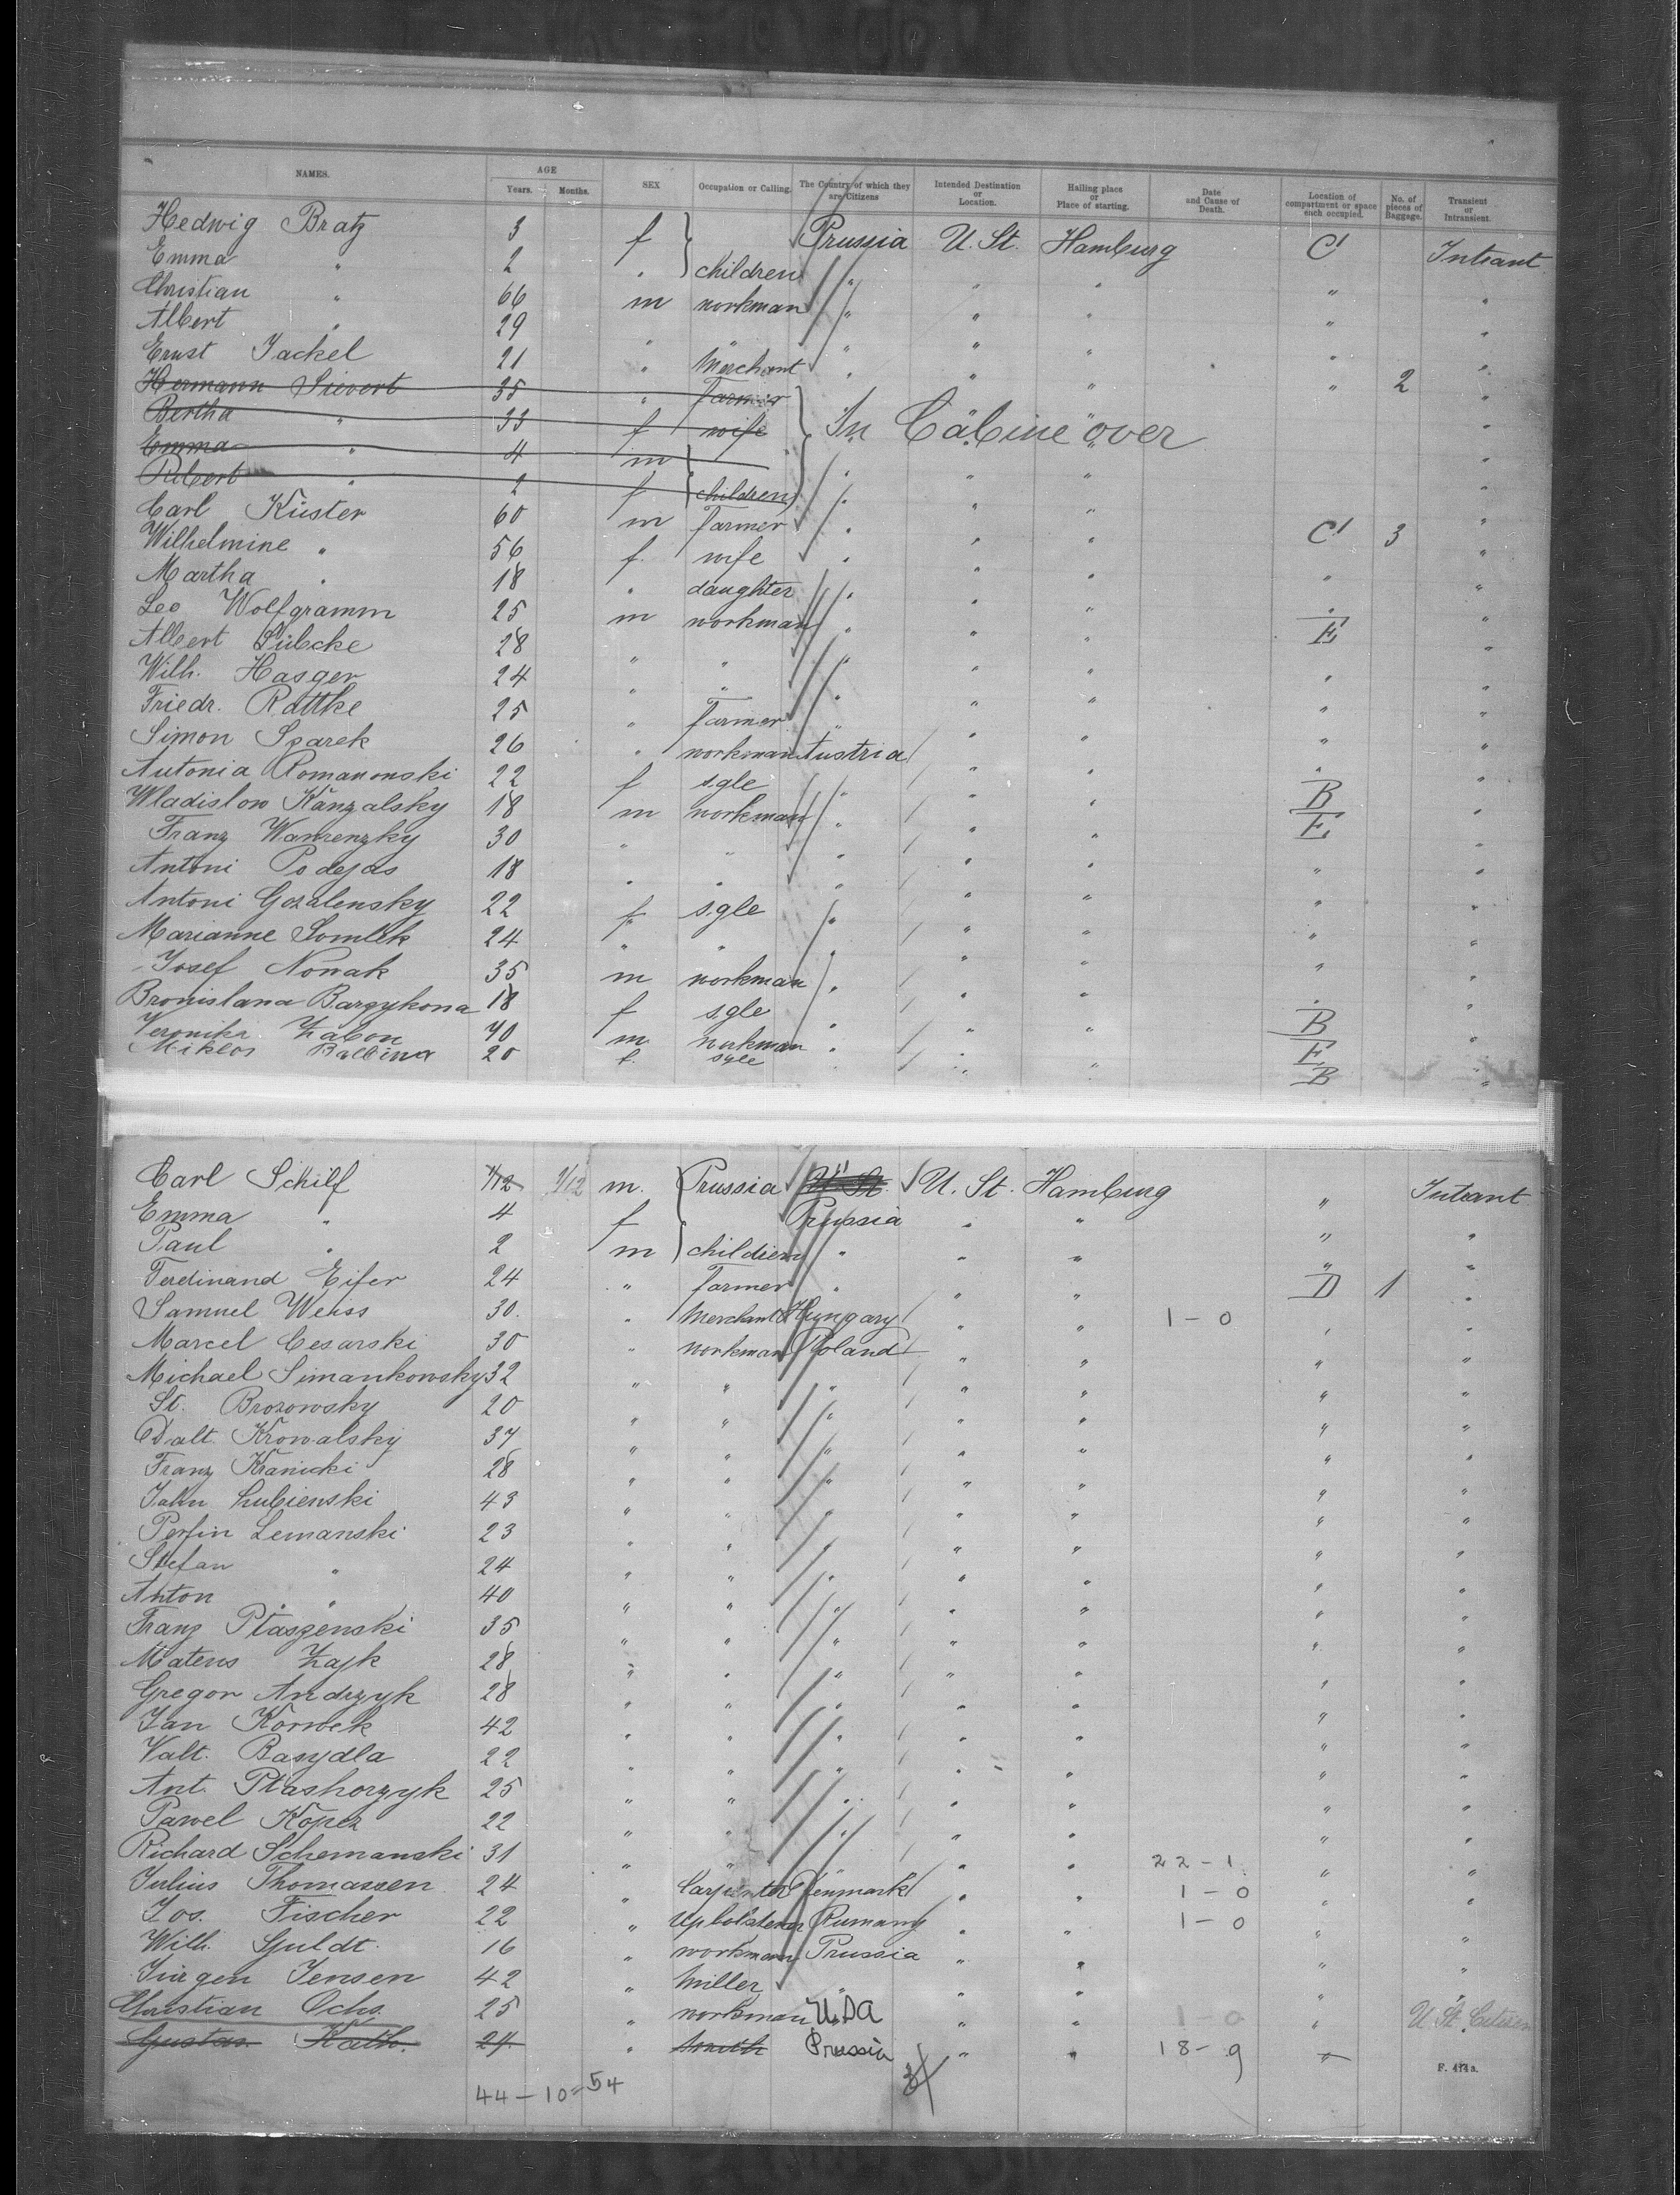 NAMES. AGE Years. Months. SEX Occupation or Calling. The Country of which they are Citizens Intended Destination or Location. Hailing place or Place of starting. Date and Cause of Death. Location of compartment or space each occupied. No. of pieces of Baggage. Transient or Intransient.
Hedwig Bratz 3 f Prussia U. St. Hamburg C1 Intrant
Emma " 2 " children " " " " "
Christian " 66 m workman " " " " "
Albert " 29 " " " " " " "
Ernst Jackel 21 " Merchant " " " " 2 "
Hermann Sievert 35 " Farmer "
Bertha " 33 f wife In Cabine over "
Emma " 4 m " " "
Robert " 2 f children " " " "
Carl Küster 60 m Farmer " " " C1 3 "
Wilhelmine " 56 f. wife " " " " "
Martha " 18 " daughter " " " " "
Leo Wolfgramm 25 m workman " " " E "
Albert Lübcke 28 " " " " " " "
Wilh. Hasger 24 " " " " " " "
Friedr. Rattke 25 " Farmer " " " " "
Simon Sparek 26 " workman Austria " " " "
Antonia Romanowski 22 f sgle " " " B "
Wladislow Kanzalsky 18 m workman " " " E "
Franz Wawrenzky 30 " " " " " " "
Antoni Podejas 18 " " " " " " "
Antoni Gozalensky 22 f sgle " " " " "
Marianne Somlek 24 " " " " " " "
Josef Nowak 35 m workman " " " " "
Bronislana Bargykona 18 f sgle " " " B "
Veronika Zabon 40 m workman " " " E "
Miklos Balbina 20 f. sgle " " " B "
Carl Schilf 1/12 m. Prussia U. St. U. St. Hamburg " Intrant
Emma " 4 f Prussia " " " "
Paul " 2 m children " " " " "
Ferdinand Eifer 24 " Farmer " " " D 1 "
Samuel Weiss 30. " Merchant Hungary " " 1 - 0 " "
Marcel Cesarski 30 " workman Poland " " " "
Michael Simankowsky 32 " " " " " " "
St. Brozowsky 20 " " " " " " "
Valt. Krowalsky 37 " " " " " " "
Franz Kranicki 28 " " " " " " "
Jahn Lubienski 43 " " " " " " "
Perfin Lemanski 23 " " " " " " "
Stefan " 24 " " " " " " "
Anton " 40 " " " " " " "
Franz Ptaszenski 35 " " " " " " "
Mateus Zajk 28 " " " " " " "
Gregor Andrzyk 28 " " " " " " "
Jan Korwek 42 " " " " " " "
Valt. Basydla 22 " " " " " " "
Ant. Ptashorzyk 25 " " " " " " "
Pawel Kopez 22 " " " " " " "
Richard Schemanski 31 " " " " " 22 - 1 " "
Julius Thomassen 24 " Carpenter Denmark " " 1 - 0 " "
Jos. Fischer 22 " Upholsterer Rumany " " 1 - 0 " "
Wilh. Guldt. 16 " workman Prussia " " " "
Jürgen Jensen 42 " Miller " " " " "
Christian Ochs. 25 " workman USA " " 1 - 0 " U St. Citizen
Gustav Kath. 24 " smith Prussia " " 18 - 9 "
44 - 10 = 54 F. 471a.